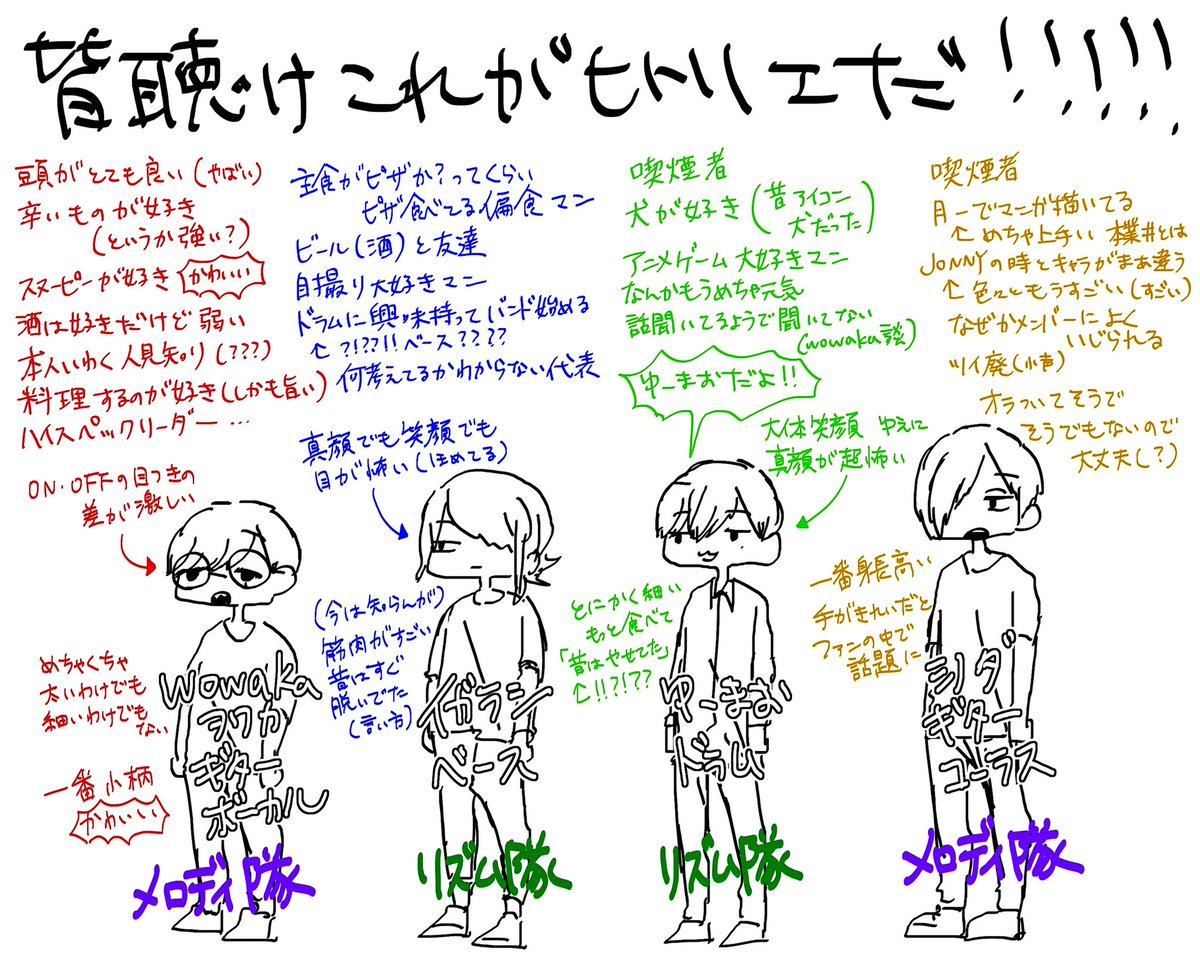 皆聴け これが ヒトリエだ!!!!!!
頭がとても良い(やばい)
辛いものが好き
(というか強い?)
スヌーピーが好き かわいい
酒は好きだけど弱い
本人いわく人見知り(???)
料理するのが好き(しかも旨い)
ハイスペックリーダー…
ON・OFFの目つきの
差が激しい
めちゃくちゃ
太いわけでも
細いわけでも
ない
一番小柄
かわいい
wowaka
ヲワカ
ギター
ボーカル
メロディ隊
主食がピザか?ってくらい
ピザ食べてる偏食マン
ビール(酒)と友達
自撮り大好きマン
ドラムに興味持ってバンド始める
↑?!??!!ベース????
何考えてるかわからない代表
真顔でも笑顔でも
目が怖い(ほめてる)
(今は知らんが)
筋肉がすごい
昔はすぐ
脱いでた
(言い方)
イガラシ
ベース
リズム隊
喫煙者
犬が好き(昔アイコン
犬だった)
アニメゲーム大好きマン
なんかもうめちゃ元気
話聞いてるようで聞いてない
(wowaka談)
ゆーまおだよ!!
大体笑顔 ゆえに
真顔が超怖い
とにかく細い
もっと食べて
「昔はやせてた」
↑!!?!??
ゆーまお
ドラム
リズム隊
喫煙者
月一でマンガ描いてる
↑めちゃ上手い
JONNYの時とキャラがまあ違う
↑色々ともうすごい(すごい)
なぜかメンバーによく
いじられる
ツイ廃(小声)
オラついてそうで
そうでもないので
大丈夫(?)
一番身長高い
手がきれいだと
ファンの中で
話題に
シノダ
ギター
コーラス
メロディ隊